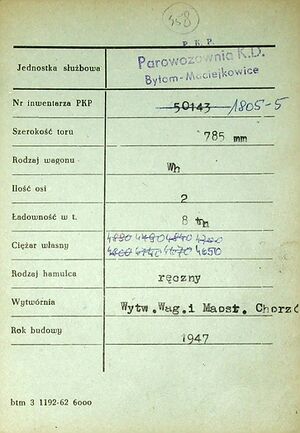 358
P. K. P.
Jednostka służbowa Parowozownia K.D.
Bytom-Maciejkowice
Nr inwentarza PKP 50143 1805-5
Szerokość toru 785 mm
Rodzaj wagonu Wh
Ilość osi 2
Ładowność w t. 8 tn
Ciężar własny
4650
Rodzaj hamulca ręczny
Wytwórnia Wytw.Wag.i Most. Chorzó
Rok budowy 1947
btm 3 1192-62 6000